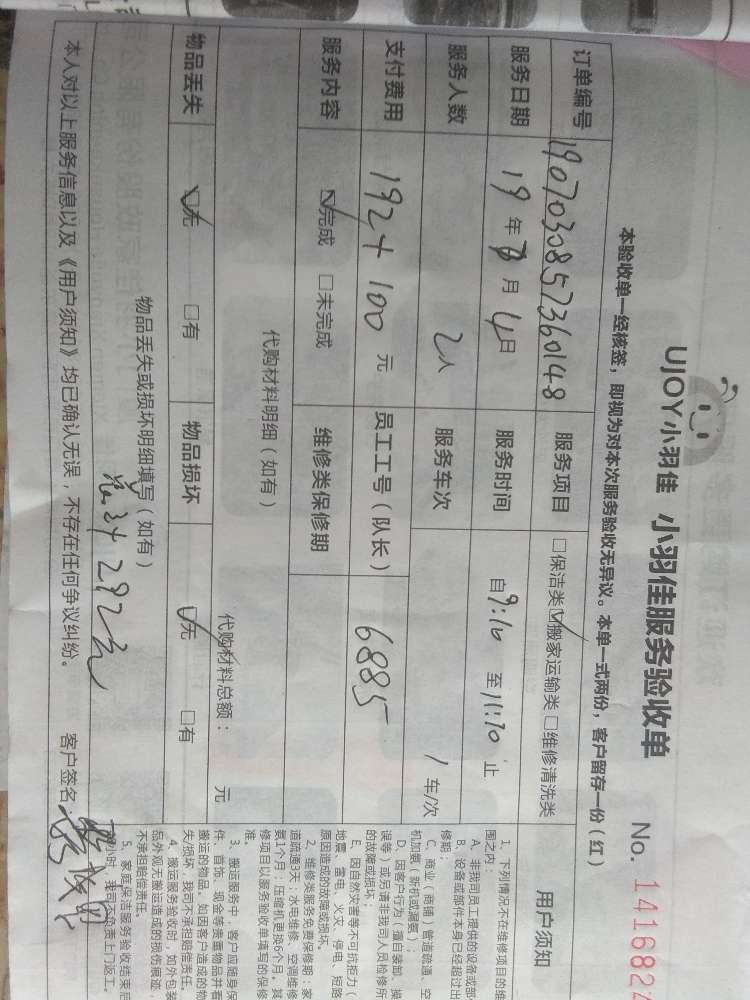 UJOY小羽佳 小羽佳服务验收单 No. 1416824
本验收单一经核签，即视为对本次服务验收无异议。本单一式两份，客户留存一份（红）
订单编号 1907030857360148 服务项目 □保洁类 ☑搬家运输类 □维修清洗类
服务日期 19年 月4日 服务时间 自9:10 至11:30止
服务人数 2人 服务车次 1 车/次
支付费用 192+100 元 员工工号（队长） 6885
服务内容 ☑完成 □未完成 维修类保修期
代购材料明细（如有） 代购材料总额： 元
物品丢失 ☑无 □有 物品损坏 ☑无 □有
物品丢失或损坏明细填写（如有）
292元
本人对以上服务信息以及《用户须知》均已确认无误，不存在任何争议纠纷。 客户签名：
用户须知
1、下列情况不在维修项目的维
围之内：
A、非我司员工提供的设备或部
B、设备或部件本身已经超过出
修期；
C、商业（商铺）管道疏通、空
机加氨（新机或漏氨）；
D、因客户行为（擅自装卸、操
误等）或另请非我司人员检修所
的故障或损坏；
E、因自然灾害等不可抗拒力（
地震、雷电、火灾、停电、短路
原因造成的故障或损坏。
2、维修类服务免费保修期：家
道疏通3天；水电维修、空调维修
氨1个月；压缩机更换6个月。其
修项目以服务验收单填写的保修
准。
3、搬运服务中，客户应随身保
件、首饰、现金等贵重物品并看
搬运的物品，如因客户造成的物
失/损坏，我司不承担赔偿责任。
4、搬运服务验收时，如外包装
品外观无搬运造成的损伤痕迹，
不承担赔偿责任。
5、家庭保洁服务验收结束后
小时，我司不负责上门返工。